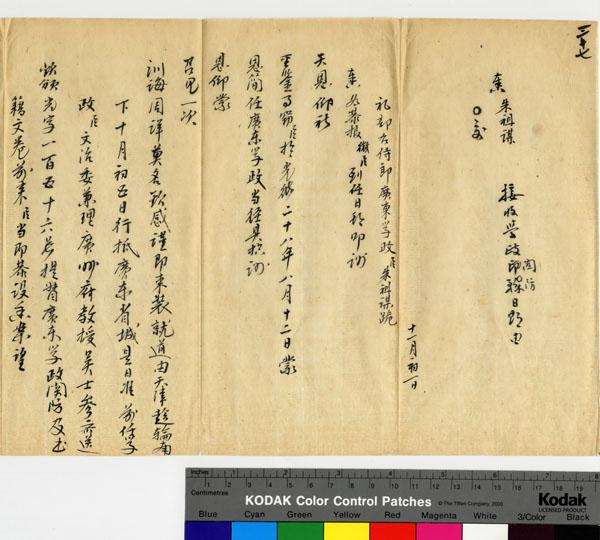 三十七
奏 朱祖謀
接收學政關防印務日期由
十一月初一日
禮部右侍郎廣東學政臣朱祖謀跪
奏為恭報微臣到任日期叩謝
天恩仰祈
聖鑒事竊臣於光緒二十八年八月十二日蒙
恩簡任廣東學政當經具摺謝
恩仰蒙
召見一次
訓誨周詳莫名欽感謹即束裝就道由天津趁輪南
下十月初五日行抵廣東省城是日准前任學
政臣文治委兼理廣州府教授吳士參齎送
欽頒光字一百五十六號提督廣東學政關防及書
籍文卷前來臣當即恭設香案望
Inches
Centimetres
KODAK Color Control Patches
© The Tiffen Company, 2000
Kodak
LICENSED PRODUCT
Blue Cyan Green Yellow Red Magenta White 3/Color Black